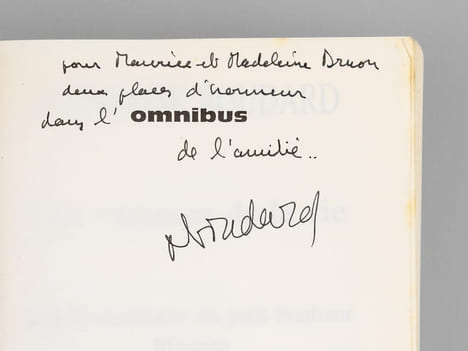 pour Maurice et Madeleine Druon
deux places d'honneur
dans l'omnibus
de l'amitié..
ABoudard